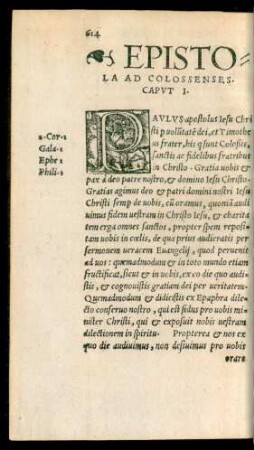 614
EPISTO=
LA AD COLOSSENSES.
CAPVT I.
PAVLVS apostolus Iesu Chri
sti p uollūtatē dei, et Timothe
us frater, his q sunt Colossis,
sanctis ac fidelibus fratribus
in Christo. Gratia uobis et
pax à deo patre nostro, & domino Iesu Christo.
Gratias agimus deo et patri domini nostri Iesu
Christi semp de uobis, cū oramus, quoniā audi
uimus fidem uestram in Christo Iesu, et charita
tem erga omnes sanctos, propter spem reposi=
tam uobis in cœlis, de qua prius audieratis per
sermonem ueracem Euangelij, quod peruenit
ad uos: quemadmodum & in toto mundo etiam
fructificat, sicut & in uobis, ex eo die quo audi=
stis, & cognouistis gratiam dei per ueritatem.
Quemadmodum & didicistis ex Epaphra dile
cto conseruo nostro, qui est fidus pro uobis mi
nister Christi, qui & exposuit nobis uestram
dilectionem in spiritu. Propterea & nos ex
quo die audiuimus, non desiuimus pro uobis
orare
2-Cor-1
Gala-1
Ephe 1
Phili-1